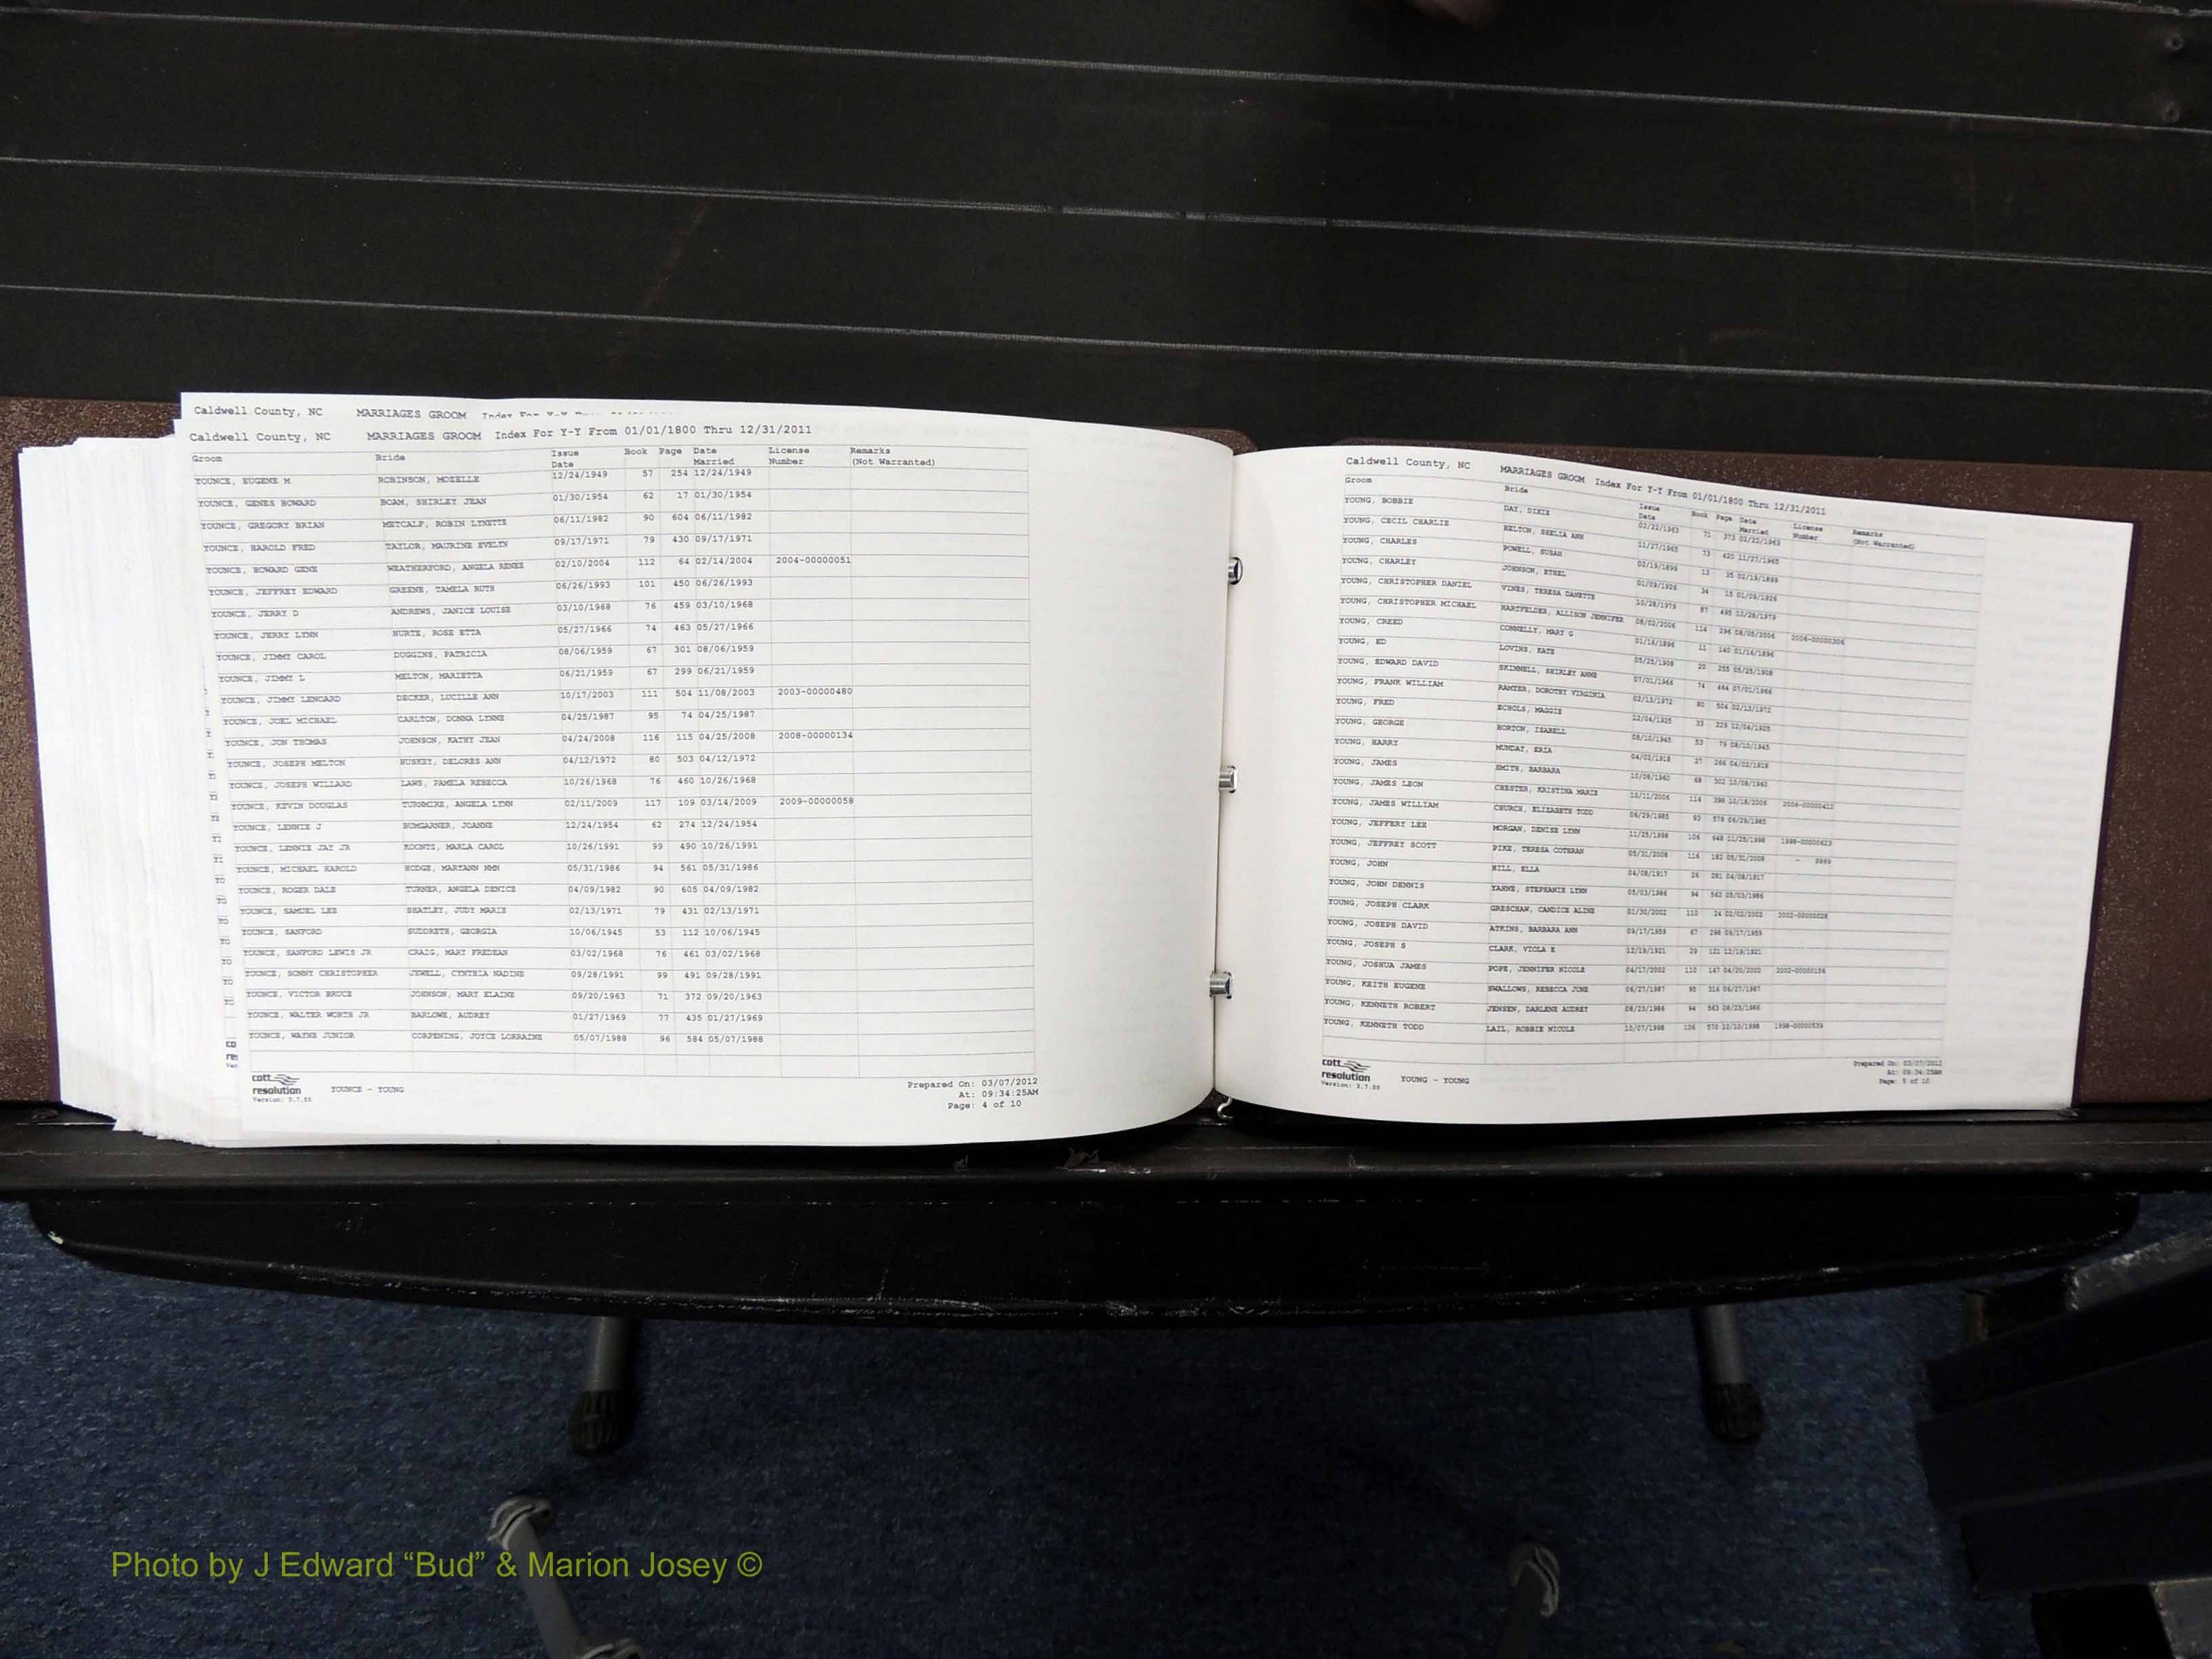 Caldwell County, NC MARRIAGES GROOM Index For Y-Y
Caldwell County, NC MARRIAGES GROOM Index For Y-Y From 01/01/1800 Thru 12/31/2011
Groom Bride Issue Date Book Page Date Married License Number Remarks (Not Warranted)
YOUNCE, EUGENE M ROBINSON, MOZELLE 12/24/1949 57 254 12/24/1949
YOUNCE, GENES HOWARD BOAM, SHIRLEY JEAN 01/30/1954 62 17 01/30/1954
YOUNCE, GREGORY BRIAN METCALF, ROBIN LYNETTE 06/11/1982 90 604 06/11/1982
YOUNCE, HAROLD FRED TAYLOR, MAURINE EVELYN 09/17/1971 79 430 09/17/1971
YOUNCE, HOWARD GENE WEATHERFORD, ANGELA RENEE 02/10/2004 112 64 02/14/2004 2004-00000051
YOUNCE, JEFFREY EDWARD GREENE, TAMELA RUTH 06/26/1993 101 450 06/26/1993
YOUNCE, JERRY D ANDREWS, JANICE LOUISE 03/10/1968 76 459 03/10/1968
YOUNCE, JERRY LYNN HURTE, ROSE ETTA 05/27/1966 74 463 05/27/1966
YOUNCE, JIMMY CAROL DUGGINS, PATRICIA 08/06/1959 67 301 08/06/1959
YOUNCE, JIMMY L MELTON, MARIETTA 06/21/1959 67 299 06/21/1959
YOUNCE, JIMMY LENOARD DECKER, LUCILLE ANN 10/17/2003 111 504 11/08/2003 2003-00000480
YOUNCE, JOEL MICHAEL CARLTON, DONNA LYNNE 04/25/1987 95 74 04/25/1987
YOUNCE, JON THOMAS JOHNSON, KATHY JEAN 04/24/2008 116 115 04/25/2008 2008-00000134
YOUNCE, JOSEPH MELTON HUSKEY, DELORES ANN 04/12/1972 80 503 04/12/1972
YOUNCE, JOSEPH WILLARD LAWS, PAMELA REBECCA 10/26/1968 76 460 10/26/1968
YOUNCE, KEVIN DOUGLAS TURNMIRE, ANGELA LYNN 02/11/2009 117 109 03/14/2009 2009-00000058
YOUNCE, LENNIE J BUMGARNER, JOANNE 12/24/1954 62 274 12/24/1954
YOUNCE, LENNIE JAY JR KOONTS, MARLA CAROL 10/26/1991 99 490 10/26/1991
YOUNCE, MICHAEL HAROLD HODGE, MARYANN NMN 05/31/1986 94 561 05/31/1986
YOUNCE, ROGER DALE TURNER, ANGELA DENICE 04/09/1982 90 605 04/09/1982
YOUNCE, SAMUEL LEE SHATLEY, JUDY MARIE 02/13/1971 79 431 02/13/1971
YOUNCE, SANFORD SUDDRETH, GEORGIA 10/06/1945 53 112 10/06/1945
YOUNCE, SANFORD LEWIS JR CRAIG, MARY FREDEAN 03/02/1968 76 461 03/02/1968
YOUNCE, SONNY CHRISTOPHER JEWELL, CYNTHIA NADINE 09/28/1991 99 491 09/28/1991
YOUNCE, VICTOR BRUCE JOHNSON, MARY ELAINE 09/20/1963 71 372 09/20/1963
YOUNCE, WALTER WORTH JR BARLOWE, AUDREY 01/27/1969 77 435 01/27/1969
YOUNCE, WAYNE JUNIOR CORPENING, JOYCE LORRAINE 05/07/1988 96 584 05/07/1988
cott resolution Version: 3.7.55
YOUNCE - YOUNG
Prepared On: 03/07/2012
At: 09:34:25AM
Page: 4 of 10
Caldwell County, NC MARRIAGES GROOM Index For Y-Y From 01/01/1800 Thru 12/31/2011
Groom Bride Issue Date Book Page Date Married License Number Remarks (Not Warranted)
YOUNG, BOBBIE DAY, DIXIE 02/22/1963 71 373 02/22/1963
YOUNG, CECIL CHARLIE KELTON, SHELIA ANN 11/27/1965 73 420 11/27/1965
YOUNG, CHARLES POWELL, SUSAN 02/19/1899 13 35 02/19/1899
YOUNG, CHARLEY JOHNSON, ETHEL 01/09/1926 34 15 01/09/1926
YOUNG, CHRISTOPHER DANIEL VINES, TERESA DANETTE 10/28/1979 87 495 10/28/1979
YOUNG, CHRISTOPHER MICHAEL HARTFELDER, ALLISON JENNIFER 08/02/2006 114 296 08/05/2006 2006-00000306
YOUNG, CREED CONNELLY, MARY G 01/16/1896 11 140 01/16/1896
YOUNG, ED LOVINS, KATE 05/25/1908 20 255 05/25/1908
YOUNG, EDWARD DAVID SKINNELL, SHIRLEY ANNE 07/01/1966 74 464 07/01/1966
YOUNG, FRANK WILLIAM RAMYER, DOROTHY VIRGINIA 02/13/1972 80 504 02/13/1972
YOUNG, FRED ECHOLS, MAGGIE 12/04/1925 33 229 12/04/1925
YOUNG, GEORGE HORTON, ISABELL 08/10/1945 53 79 08/10/1945
YOUNG, HARRY MUNDAY, ERIA 04/02/1918 27 266 04/02/1918
YOUNG, JAMES SMITH, BARBARA 10/08/1960 68 302 10/08/1960
YOUNG, JAMES LEON CHESTER, KRISTINA MARIE 10/11/2006 114 398 10/18/2006 2006-00000412
YOUNG, JAMES WILLIAM CHURCH, ELIZABETH TODD 06/29/1985 93 578 06/29/1985
YOUNG, JEFFERY LEE MORGAN, DENISE LYNN 11/25/1998 106 648 11/25/1998 1998-00000623
YOUNG, JEFFREY SCOTT PIKE, TERESA COTHRAN 05/31/2008 116 182 05/31/2008 - 9999
YOUNG, JOHN HILL, ELLA 04/08/1917 26 281 04/08/1917
YOUNG, JOHN DENNIS YAHNE, STEPHANIE LYNN 05/03/1986 94 562 05/03/1986
YOUNG, JOSEPH CLARK GRESCHAW, CANDICE ALINE 01/30/2002 110 24 02/02/2002 2002-00000028
YOUNG, JOSEPH DAVID ATKINS, BARBARA ANN 09/17/1959 67 298 09/17/1959
YOUNG, JOSEPH S CLARK, VIOLA E 12/19/1921 29 121 12/19/1921
YOUNG, JOSHUA JAMES POPE, JENNIFER NICOLE 04/17/2002 110 147 04/20/2002 2002-00000156
YOUNG, KEITH EUGENE SWALLOWS, REBECCA JUNE 06/27/1987 95 316 06/27/1987
YOUNG, KENNETH ROBERT JENSEN, DARLENE AUDREY 08/23/1986 94 563 08/23/1986
YOUNG, KENNETH TODD LAIL, ROBBIE NICOLE 10/07/1998 106 570 10/10/1998 1998-00000539
cott resolution Version: 3.7.55
YOUNG - YOUNG
Prepared On: 03/07/2012
At: 09:34:25AM
Page: 5 of 10
Photo by J Edward “Bud” & Marion Josey ©